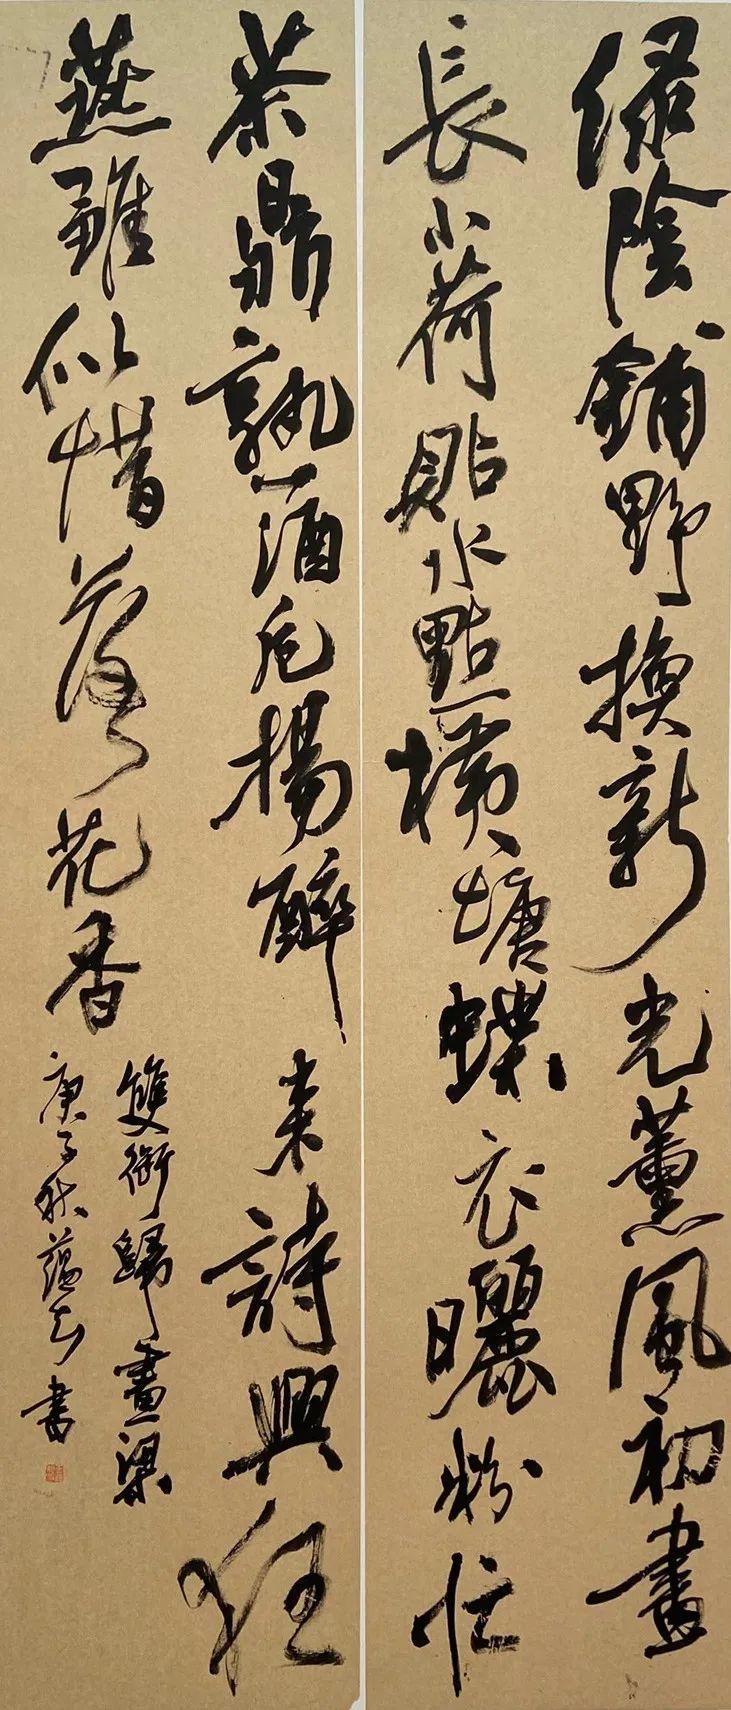 绿陰鋪野換新光薰風初晝
長小荷貼水點橫塘蝶衣曬粉忙
茶鼎熟酒卮揚醉来詩興狂
燕雖似惜落花香
雙銜歸畫梁
庚子秋蘊書